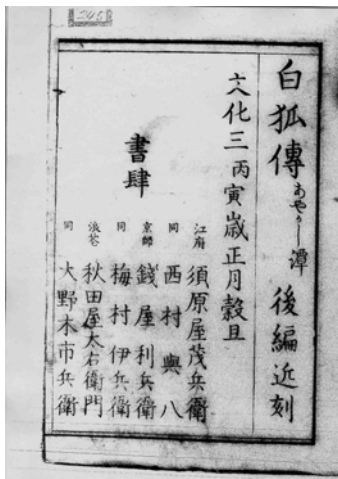 白狐傳 あやかし潭 後編近刻
文化三丙寅歳正月穀旦
書肆
江府 須原屋茂兵衛
同 西村與八
京師 錢屋利兵衛
同 梅村伊兵衛
浪花 秋田屋太右衛門
同 大野木市兵衛